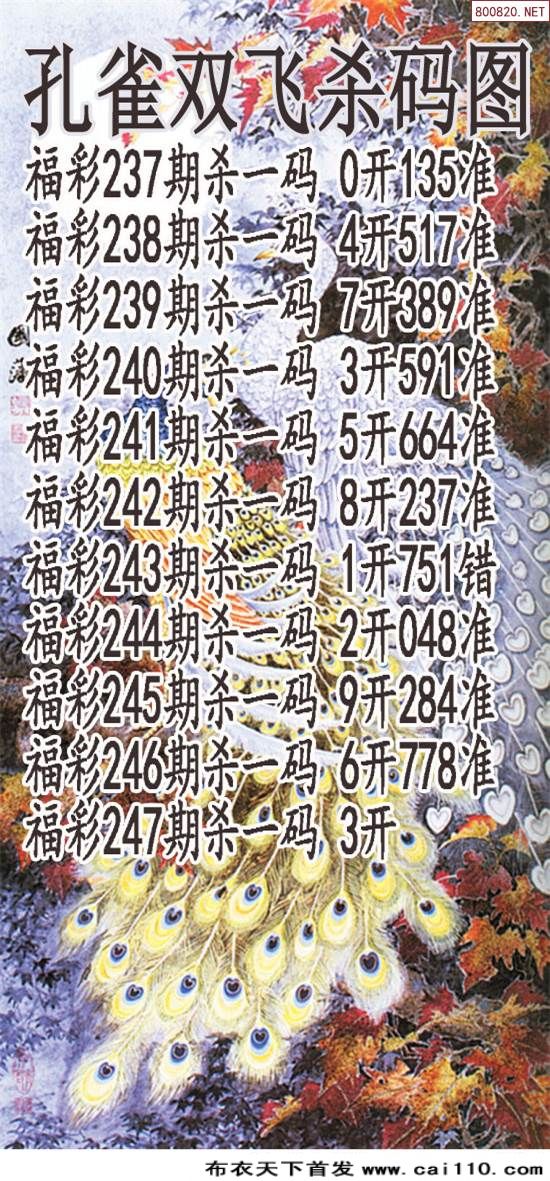 800820.NET
孔雀双飞杀码图
福彩237期杀一码 0开135准
福彩238期杀一码 4开517准
福彩239期杀一码 7开389准
福彩240期杀一码 3开591准
福彩241期杀一码 5开664准
福彩242期杀一码 8开237准
福彩243期杀一码 1开751错
福彩244期杀一码 2开048准
福彩245期杀一码 9开284准
福彩246期杀一码 6开778准
福彩247期杀一码 3开
布衣天下首发 www.cai110.com